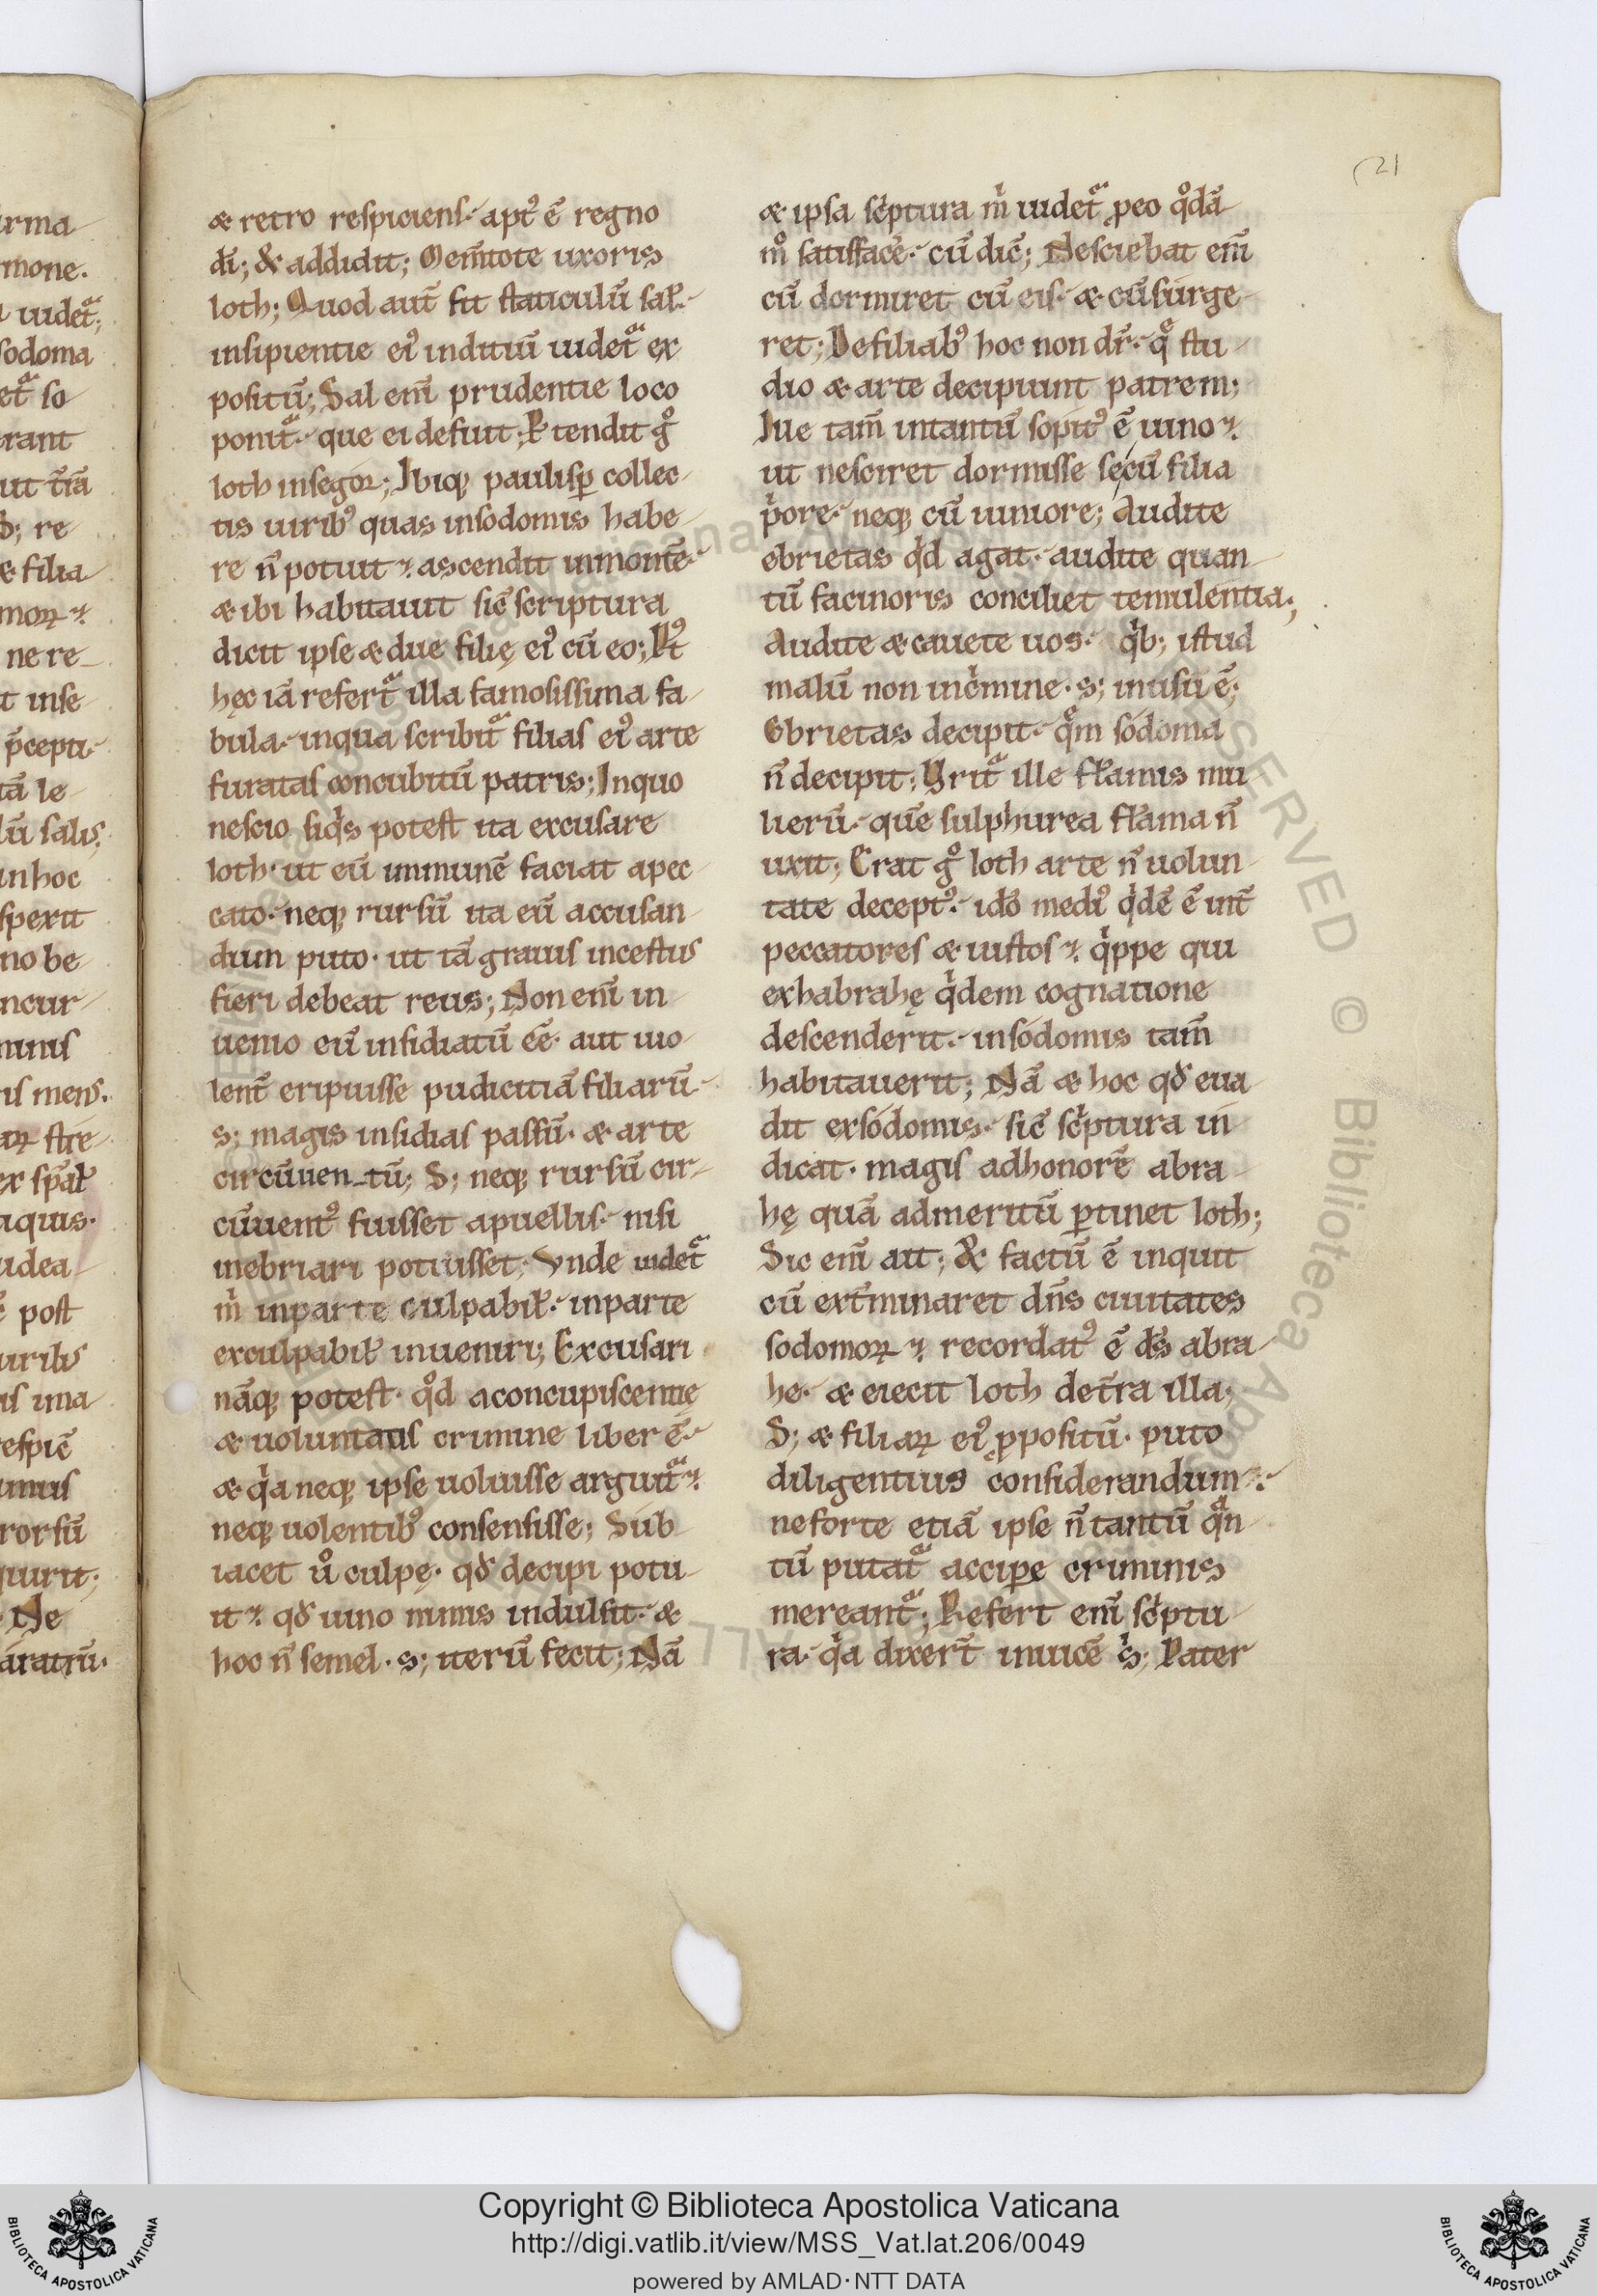 21
irma
rmone.
uidetᷓ;
sodoma
etᷓ so
erant
ut t̄rā
b; re
& filia
morꝝ
ne re
t inse
p̄cepti
tā le
lū salis;
in hoc
spexit
no be
ncur
minis
ris mens.
arꝝ stre
ex sp̄al'
aquis.
udea
post
uribus
is ima
respic̄
imus
rorsū
quirit;
Ne
aratrū.
& retro respiciens. aptꝰ ē regno
dī; & addidit; Mem̄tote uxoris
loth; Quod aut̄ fit staticulū sal̵.
insipientie eiꝰ inditiū uidetᷓ ex
positū; Sal eni᷒ prudentie loco
ponitᷓ. que ei defuit; P̄tendit gͦ
loth insegorꝝ; Ibiqꝫ paulisꝑ collec
tis uiribꝰ quas insodomis habe
re n̄ potuit. ascendit inmontē.
& ibi habitauit sic̄ scriptura
dicit ipse & due filię eiꝰ cū eo; Pꝰt
hęc iā refertᷓ illa famosissima fa
bula. inqua scribitᷓ filias eiꝰ arte
furatas concubitū patris; Inquo
nescio siqͥs potest ita excusare
loth. ut eū immunē faciat apec
cato. neqꝫ rursū ita eū accusan
dum puto. ut tā grauis incestus
fieri debeat reus; Non enī in
uenio eū insidiatū eē. aut uio
lent̄ eripuisse pudicitiā filiarū.
s; magis insidias passū. & arte
circūuen_tū; S; neqꝫ rursū cir
cūuentꝰ fuisset apuellis. nisi
inebriari potuisset; Vnde uidetᷓ
mͥ inparte culpabil̵. inparte
exculpabil̵ inueniri; Excusari
nāqꝫ potest. qͦd aconcupiscentię
& uoluntatis crimine liber ē.
& qͥa neqꝫ ipse uoluisse arguitᷓ.
neqꝫ uolentibꝰ consensisse; Sub
iacet uͦ culpę. qđ decipi potu
it. qđ uino nimis indulsit. &
hoc n̄ semel. s; iterū fecit; Nā
& ipsa scͥptura mͥ uidetᷓ ꝓeo qͦdā
mͦ satisfacē. cū dic̄; Nesciebat enī
cū dormiret cū eis. & cū surge
ret; Defiliabꝰ hoc non dr̄. qͤ stu
dio & arte decipiunt patrem;
Iue tam̄ intantū sopitꝰ ē uino.
ut nesciret dormisse secū filia
pͥore. neqꝫ cū iuniore; Audite
ebrietas qͥd agat. audite quan
tū facinoris conciliet temulentia;
Audite & cauete uos. qͥb; istud
malū non incͥmine. s; inusu ē;
Ebrietas decipit. qͤm sodoma
n̄ decipit; Vritᷓ ille flāmis mu
lierū. quē sulphurea flāma n̄
uxit; Erat gͦ loth arte n̄ uolun
tate deceptꝰ. idō mediꝰ qͥdē ē int̄
peccatores & iustos. qͥppe qui
exhabrahę qͥdem cognatione
descenderit. insodomis tam̄
habitauerit; Nā & hoc qđ eua
dit exsodomis. sic̄ scͥptura in
dicat. magis adhonorē abra
hę quā admeritū ꝑtinet loth;
Sic enī ait; & factū ē inquit
cū ext̄minaret dn̄s ciuitates
sodomorꝝ. recordatꝰ ē dš abra
he. & eiecit loth det̄ra illa;
S; & filiarꝝ eiꝰ ꝓpositū. puto
diligentius considerandum.
neforte etiā ipse n̄ tantū qᷓn
tū putatᷓ acciꝑe criminis
mereantᷓ; Refert enī scͥptu
ra. qͥa dixert̄ inuicē sͥ; Pater
Copyright © Biblioteca Apostolica Vaticana
http://digi.vatlib.it/view/MSS_Vat.lat.206/0049
powered by AMLAD·NTT DATA
BIBLIOTECA APOSTOLICA VATICANA
BIBLIOTECA APOSTOLICA VATICANA